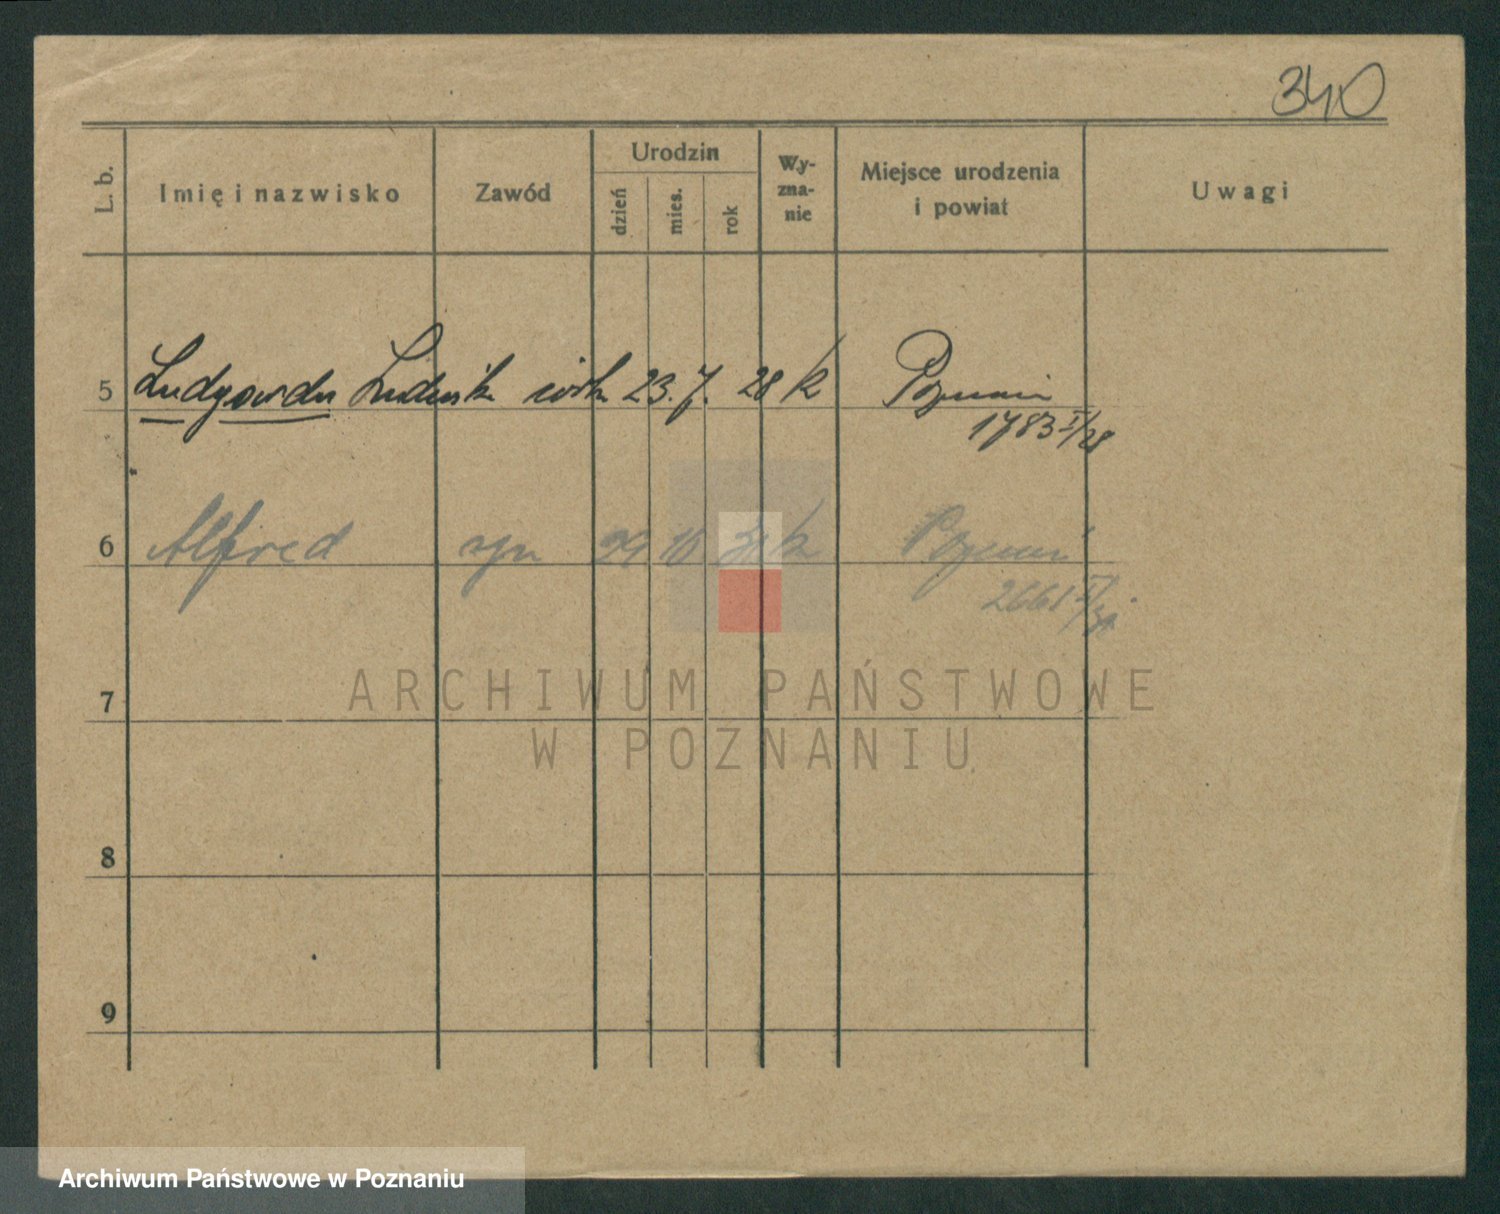 340
L. b.
Imię i nazwisko
Zawód
Urodzin
dzień
mies.
rok
Wy-
zna-
nie
Miejsce urodzenia
i powiat
Uwagi
5 23. 7. 28 k Poznań
1783 I/28
6 Alfred syn 29 10 k Poznań
7
ARCHIWUM PAŃSTWOWE
W POZNANIU
8
9
Archiwum Państwowe w Poznaniu